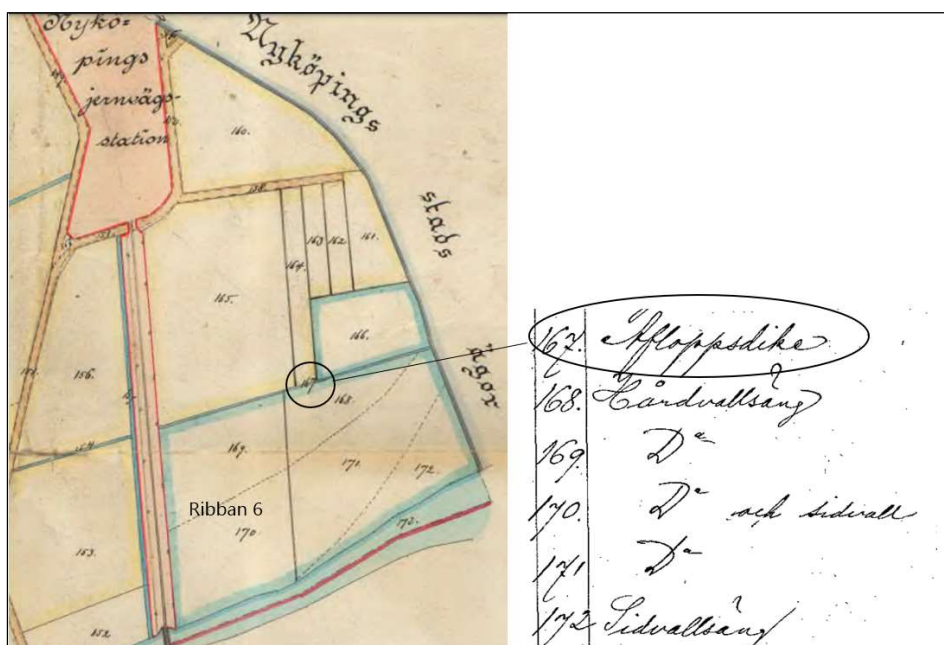 Nykö-
pings
jernvägs-
station
Nyköpings
stads
ägor
160.
161.
162
163
164.
165.
166.
156.
167
168.
169.
171.
172.
170.
172.
153.
152.
Ribban 6
167. Afloppsdike
168. Hårdvallsäng
169 D°
170. D° och sidvall
171 D°
172 Sidvallsäng